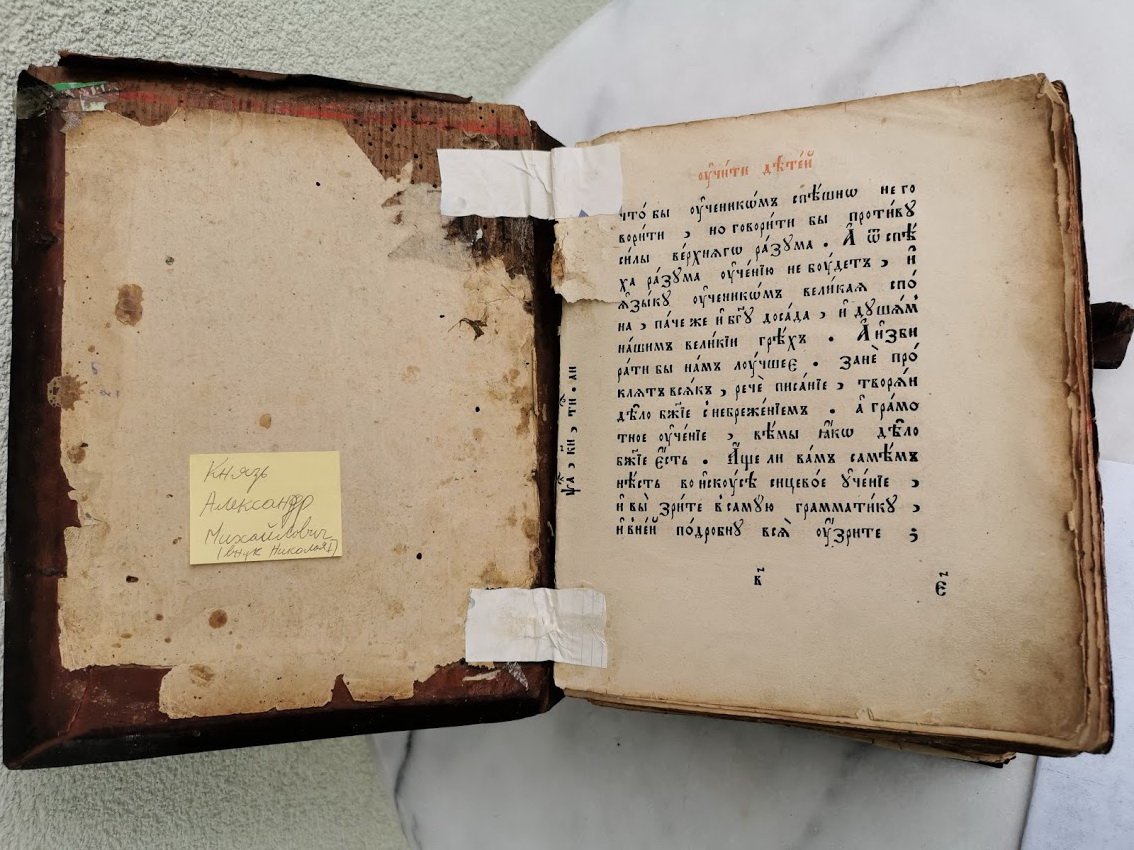 Князь
Александр
Михайлович
(внук Николая I)
оу҆чи́ти дѣте́й
что́ бы оу҆ченикѡ́мъ спѣ́шнѡ не го
вори́ти , но говори́ти бы проти́вꙋ
си́лы ве́рхнягѡ ра́зума . А҆ ѿ спѣ́
ха ра́зума оу҆че́нїю не боу́детъ , и҆
ꙗ҆зы́ку оу҆ченикѡ́мъ вели́кая спо́
на , па́че же и҆ бг҃ꙋ доса́да , и҆ дꙋша́мъ
на́шимъ вели́кїи грѣ́хъ . А҆ и҆зби
ра́ти бы на́мъ лоу́чшее . Занѐ про́
клятъ вся́къ , речѐ писа́нїе , творѧ́и
дѣ́ло бж҃їе с небреже́нїемъ . а҆ гра́мо
тное оу҆че́нїе , вѣ́мы ꙗ҆́кѡ дѣ́ло
бж҃їе є҆́сть . А҆́ще ли ва́мъ самѣ́мъ
нѣ́сть во и҆скоу́сѣ сицево́е ᲂу҆че́нїе ,
и҆ вы̀ зри́те в самую грамматі́кꙋ ,
и҆ в не́й подро́бнꙋ вся̀ оу҆́зрите ;
в҃
є҃